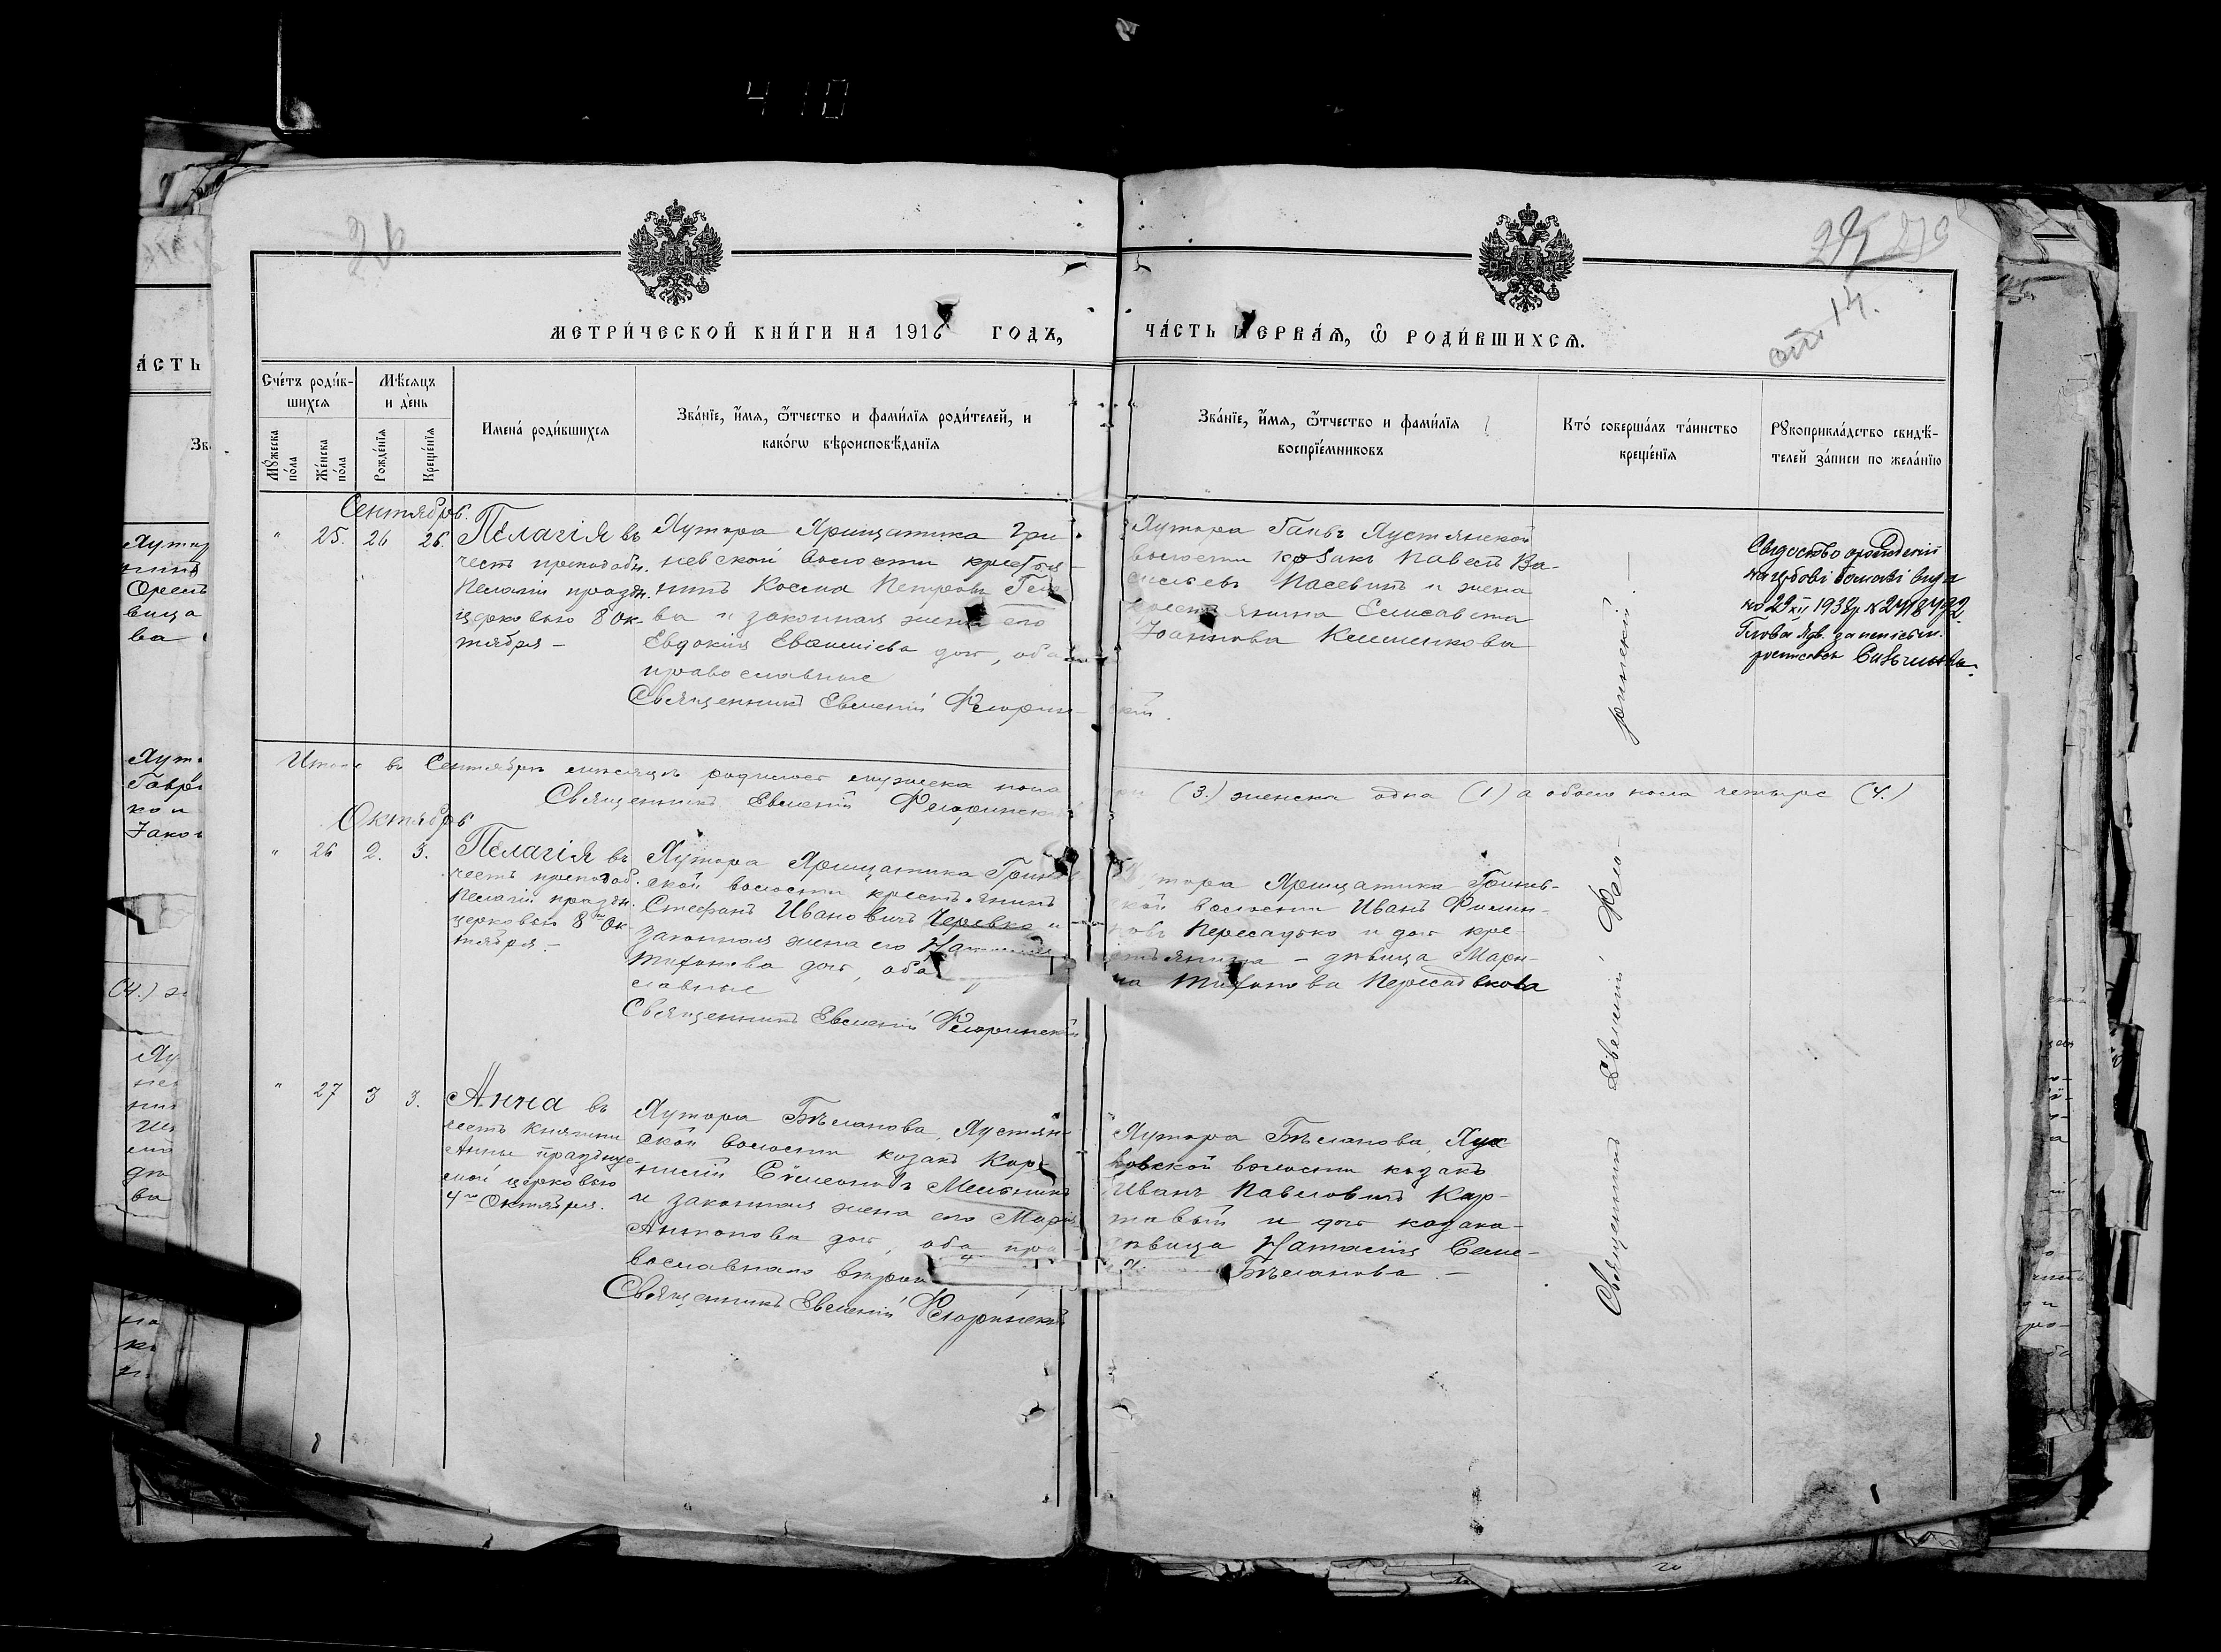 410
26
МЕТРИ́ЧЕСКОЙ КНИ́ГИ НА 1916 ГОДЪ,
ЧА́СТЬ ПЕРВА́Я, Ѽ РОДИ́ВШИХСЯ.
Сче́тъ роди́в-
шихся
Мѣ́сяцъ
и де́нь
Му́жеска
по́ла
Же́нска
по́ла
Рожде́нїя
Креще́нїя
Имена́ роди́вшихся
Зва́нїе, и҆́мя, ѻ҆́тчество и фами́лїя роди́телей, и
како́гѡ вѣроисповѣ́данїя
Зва́нїе, и҆́мя, ѻ҆́тчество и фами́лїя
воспрїе́мниковъ
Кто́ соверша́лъ та́инство
креще́нїя
Рукоприкла́дство свидѣ́-
телей за́писи по жела́нїю
Сентябрь.
" 25. 26 26.
Пелагія въ
честь преподобн.
Пелагіи праздн.
церковью 8 Ок-
тября –
Хутора Ярищатика Гри
невской волости крестья
нинъ Косма Петровъ
ва и законная жена его
Евдокія Евфиміева дочь, оба
православные
Священникъ Евгеній Флорин-
скій.
Хутора Ганъ Хустянской
волости козакъ Павелъ Ва-
сильевъ Пасевинъ и жена
крестьянина Елисавета
Іоаннова Клименкова
Итого въ Сентябрѣ мѣсяцѣ родилось мужеска пола
три (3.) женска одна (1) а обоего пола четыре (4.)
Священникъ Евгеній Флоринск
Октябрь
" 26 2. 3.
Пелагія въ
честь преподоб.
Пелагіи праздн.
церковью 8го Ок
тября. –
Хутора Ярищатика Гринев
ской волости крестьянинъ
Стефанъ Ивановичъ Черевко и
законная жена его Наталія
Тихонова дочь, оба
славные
Священникъ Евгеній Флоринскій
Хутора Ярищатика Гринев-
ской волости Иванъ Филип-
повъ Пересадько и дочь кре-
стьянина – дѣвица Мари-
на Тихонова Пересадькова
" 27 3 3.
Анна въ
честь княгини
Анны празднуе-
мой церковью
4го Октября.
Хутора Бѣланова, Хустян-
ской волости козакъ Кор-
нилій Симеоновъ Мельникъ
и законная жена его Марія
Антонова дочь, оба пра-
вославнаго вѣрои
Священникъ Евгеній Флоринскій
Хутора Бѣланова,
волости козакъ
Иванъ Павловичъ Кар-
тавый и дочь козака-
дѣвица Наталія Семе-
Бѣланова. –
Священникъ Евгеній Фло-
ринскій. –